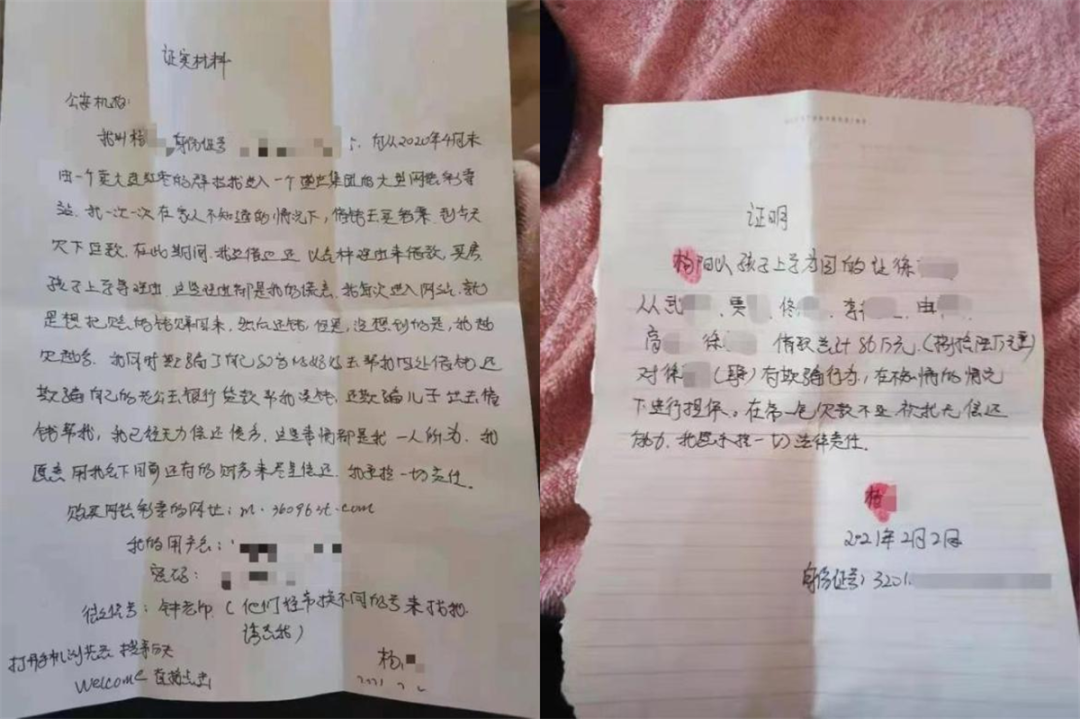 证实材料
公安机关:
我叫杨 身份证号 ,自从2020年4月末
由一个卖大连红枣的群拉我进入一个 集团的大型网络彩票
站.我一次一次在家人不知道的情况下,借钱去买彩票.到今天
欠下巨款.在此期间.我边借边还 以各种理由来借款,买房
孩子上学等理由 这些理由都是我的谎言.我每次进入网站,就
是想把 的钱赚回来,然后还钱 但是,没想到的是,我越
欠越多. 我同时欺骗了自己50多 好 去帮我四处借钱.还
欺骗自己的老公去银行贷款帮我还钱,还欺骗儿子 去借
钱帮我,我已经无力偿还债务.这些事情都是我一人所为.我
愿意用我名下目前还有的财务来尽量偿还.我承担一切责任.
购买网络彩票的网址:m.36096st.com
我的用户名:
密码:
微信号:钟老师.(他们经常换不同的号来找我
请 我)
打开手机 先点
welcome 直接点击
杨
2021.2.2
证明
杨阳以孩子上学为由的让徐
从武 、吴 、佟 、李 、申
高 徐 借款总计86万元.(捌拾陆万元整)
对徐 ( )有欺骗行为,在不知情的情况
下进行担保.在 一笔欠款不还.被我无偿还
能力.我愿承担一切法律责任.
杨
2021年2月2日
身份证号:3201